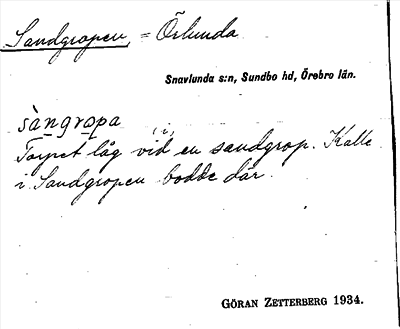 Sandgropen, = Örlunda
Snavlunda s:n, Sundbo hd, Örebro län.
sàngrɔpa
Torpet låg vid en sandgrop. Kalle
i Sandgropen bodde där.
GÖRAN ZETTERBERG 1934.